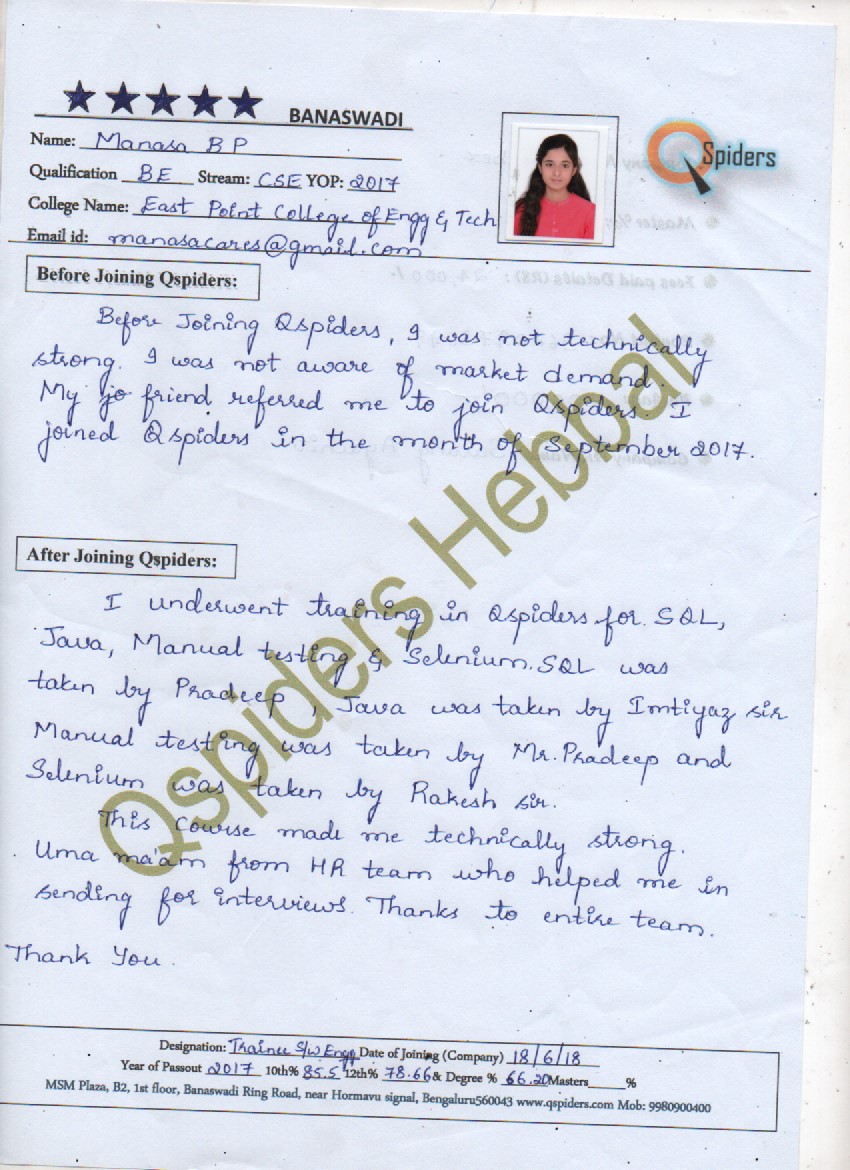 BANASWADI
Name: Manasa B P
Qualification BE Stream: CSE YOP: 2017
College Name: East Point College of Engg & Tech
Email id: manasacares@gmail.com
QSpiders
Before Joining Qspiders:
Before Joining Qspiders, I was not technically
strong. I was not aware of market demand.
My friend referred me to join Qspiders. I
joined Qspiders in the month of September 2017.
After Joining Qspiders:
I underwent training in Qspiders for SQL,
Java, Manual testing & Selenium. SQL was
taken by Pradeep, Java was taken by Imtiyaz sir
Manual testing was taken by Mr. Pradeep and
Selenium was taken by Rakesh sir.
This course made me technically strong.
Uma ma'am from HR team who helped me in
sending for interviews. Thanks to entire team.
Thank You.
Qspiders Hebbal
Designation: Trainee S/w Engg Date of Joining (Company) 18/6/18
Year of Passout 2017 10th% 85.5 12th% 78.66 & Degree % 66.20 Masters____%
MSM Plaza, B2, 1st floor, Banaswadi Ring Road, near Hormavu signal, Bengaluru560043 www.qspiders.com Mob: 9980900400